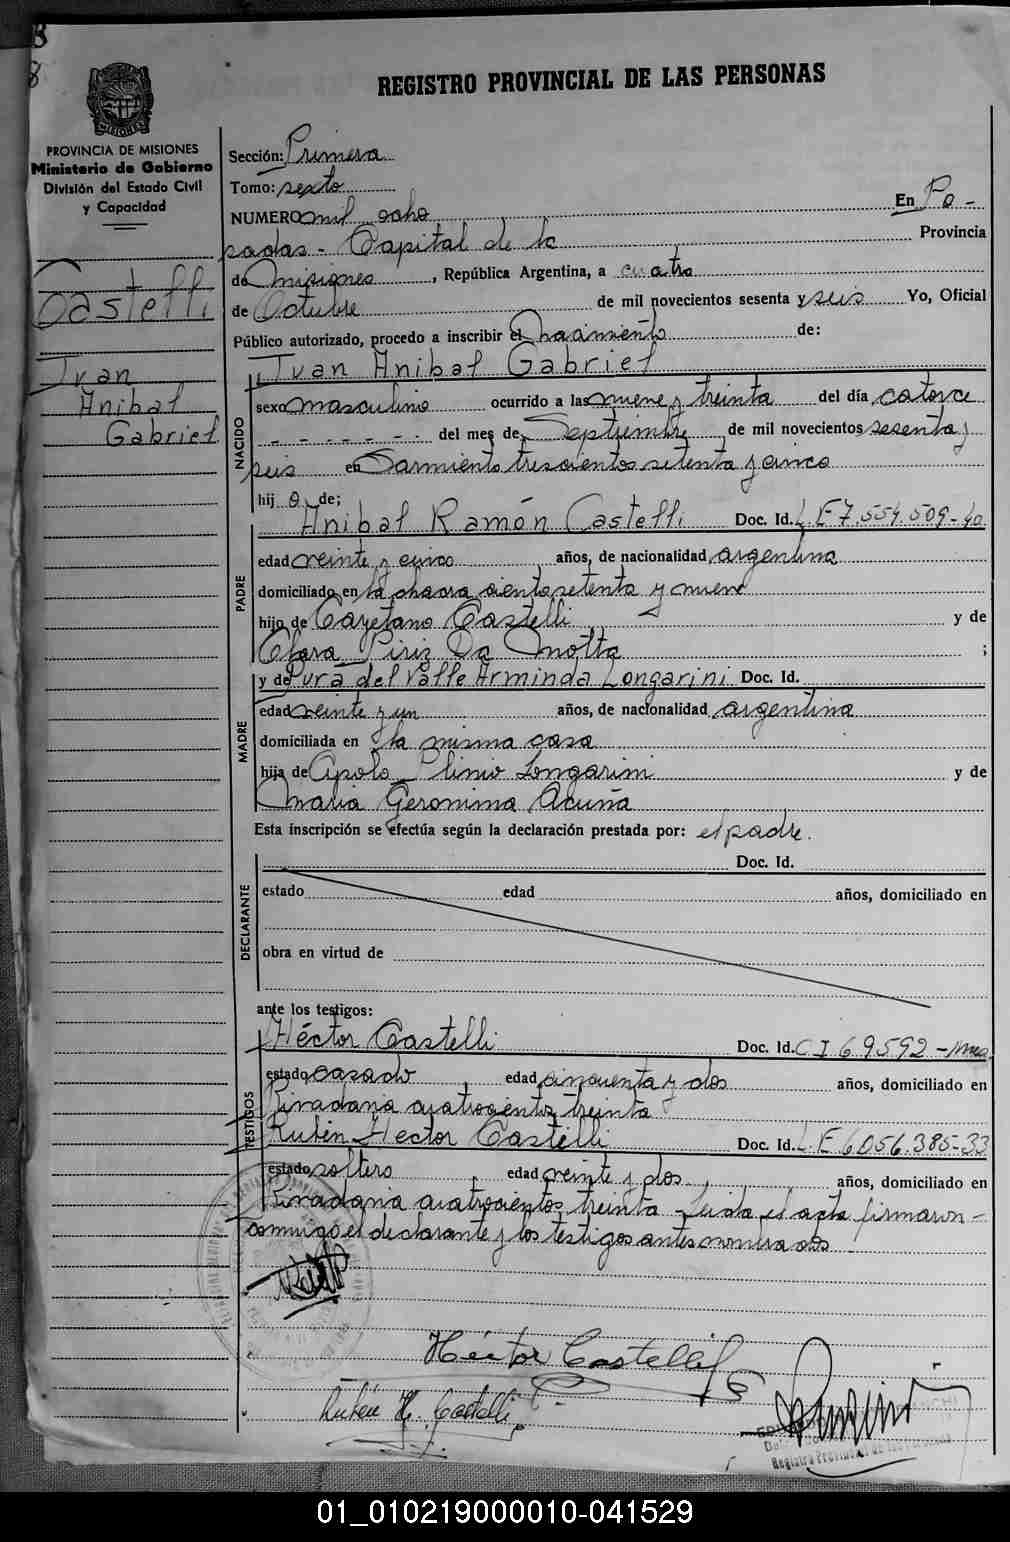 REGISTRO PROVINCIAL DE LAS PERSONAS
MISIONES
PROVINCIA DE MISIONES
Ministerio de Gobierno
División del Estado Civil
y Capacidad
Castelli
Juan
Anibal
Gabriel
Sección: Primera
Tomo: sexto
NUMERO mil ocho En Po-
sadas - Capital de la Provincia
de Misiones, República Argentina, a cuatro
de Octubre de mil novecientos sesenta y seis Yo, Oficial
Público autorizado, procedo a inscribir el Nacimiento de:
Juan Anibal Gabriel
NACIDO
sexo masculino ocurrido a las nueve y treinta del día catorce
- - - - - - - del mes de Septiembre de mil novecientos sesenta y
seis en Sarmiento trescientos setenta y cinco
hij o de;
Anibal Ramón Castelli Doc. Id. L.E 7.554.509-40
PADRE
edad veinte y cinco años, de nacionalidad argentina
domiciliado en la chacra ciento setenta y nueve
hijo de Cayetano Castelli y de
Clara Piriz Da Motta ;
y de Pura del Valle Arminda Longarini Doc. Id.
MADRE
edad veinte y un años, de nacionalidad argentina
domiciliada en la misma casa
hija de Apolo Plinio Longarini y de
Maria Geronima Acuña
Esta inscripción se efectúa según la declaración prestada por: el padre.
DECLARANTE
Doc. Id.
estado edad años, domiciliado en
obra en virtud de
ante los testigos:
TESTIGOS
Héctor Castelli Doc. Id. C I 69592 - Mnes
estado casado, edad cincuenta y dos años, domiciliado en
Rivadavia cuatrocientos treinta
Rubén Hector Castelli Doc. Id. L.E 6056.385-33
estado soltero edad veinte y dos, años, domiciliado en
Rivadavia cuatrocientos treinta - Leida el acta firmaron -
conmigo el declarante y los testigos antes nombrados
Héctor Castelli
Rubén H. Castelli
Registro Provincial de las Personas
01_010219000010-041529